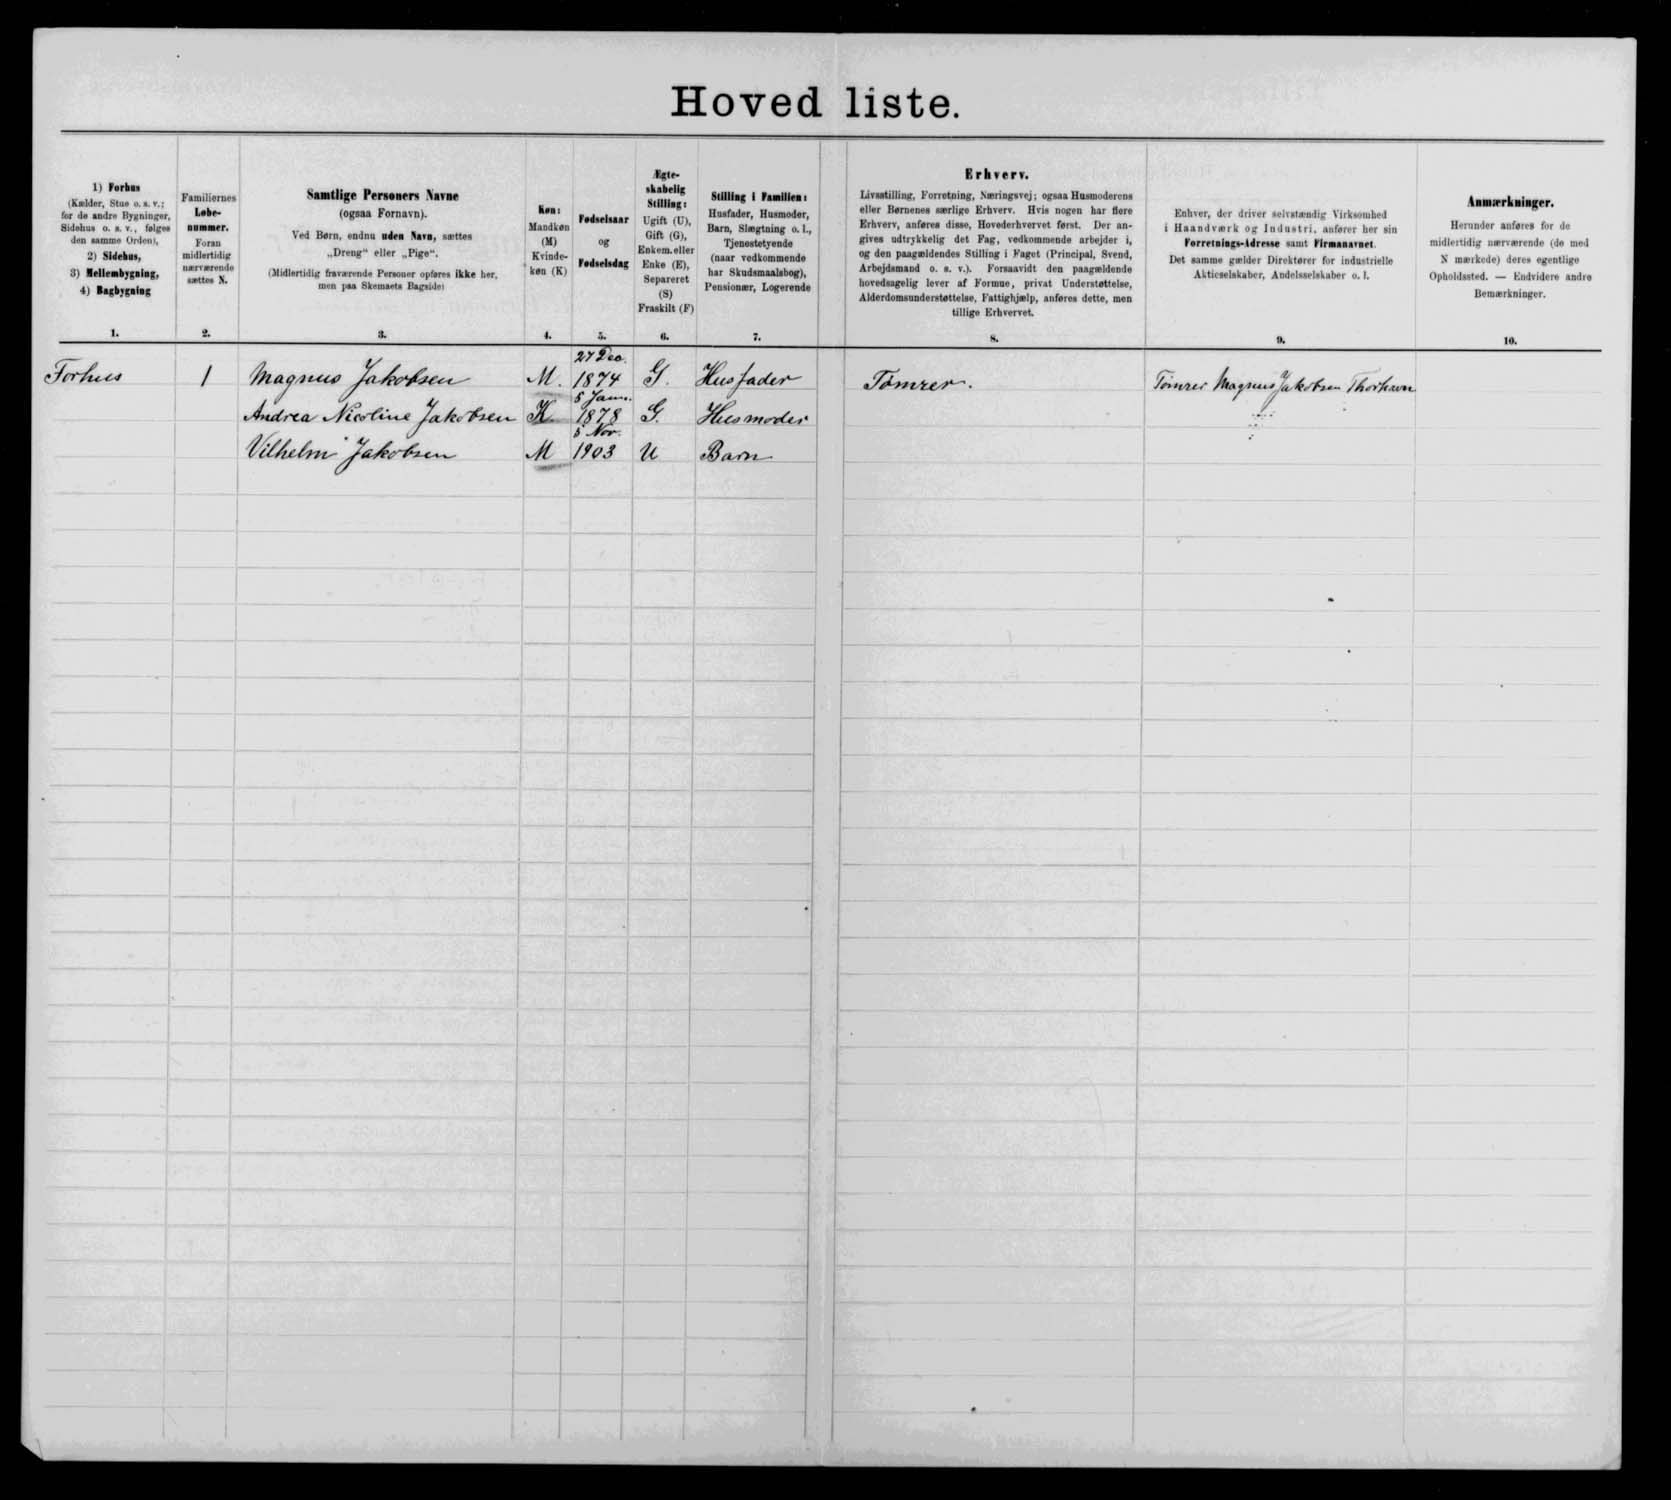 Hoved liste.
1) Forhus
(Kælder, Stue o. s. v.;
for de andre Bygninger,
Sidehus o. s. v., følges
den samme Orden),
2) Sidehus,
3) Mellembygning,
4) Bagbygning
1.
Familiernes
Løbe-
nummer.
Foran
midlertidig
nærværende
sættes N.
2.
Samtlige Personers Navne
(ogsaa Fornavn).
Ved Børn, endnu uden Navn, sættes
„Dreng“ eller „Pige“.
(Midlertidig fraværende Personer opføres ikke her,
men paa Skemaets Bagside)
3.
Køn:
Mandkøn
(M)
Kvinde-
køn (K)
4.
Fødselsaar
og
Fødselsdag
5.
Ægte-
skabelig
Stilling:
Ugift (U),
Gift (G),
Enkem. eller
Enke (E),
Separeret
(S)
Fraskilt (F)
6.
Stilling i Familien:
Husfader, Husmoder,
Barn, Slægtning o. l.,
Tjenestetyende
(naar vedkommende
har Skudsmaalsbog),
Pensionær, Logerende
7.
Erhverv.
Livsstilling, Forretning, Næringsvej; ogsaa Husmoderens
eller Børnenes særlige Erhverv. Hvis nogen har flere
Erhverv, anføres disse, Hovederhvervet først. Der an-
gives udtrykkelig det Fag, vedkommende arbejder i,
og den paagældendes Stilling i Faget (Principal, Svend,
Arbejdsmand o. s. v.). Forsaavidt den paagældende
hovedsagelig lever af Formue, privat Understøttelse,
Alderdomsunderstøttelse, Fattighjælp, anføres dette, men
tillige Erhvervet.
8.
Enhver, der driver selvstændig Virksomhed
i Haandværk og Industri, anfører her sin
Forretnings-Adresse samt Firmanavnet.
Det samme gælder Direktører for industrielle
Aktieselskaber, Andelsselskaber o. l.
9.
Anmærkninger.
Herunder anføres for de
midlertidig nærværende (de med
N mærkede) deres egentlige
Opholdssted. — Endvidere andre
Bemærkninger.
10.
Forhus 1 Magnus Jakobsen M. 27 Dec. 1874 G. Husfader Tømrer. Tømrer Magnus Jakobsen Thorhavn
Andrea Nicoline Jakobsen K 5 Jann. 1878 G. Husmoder
Vilhelm Jakobsen M 5 Nov. 1903 U Barn